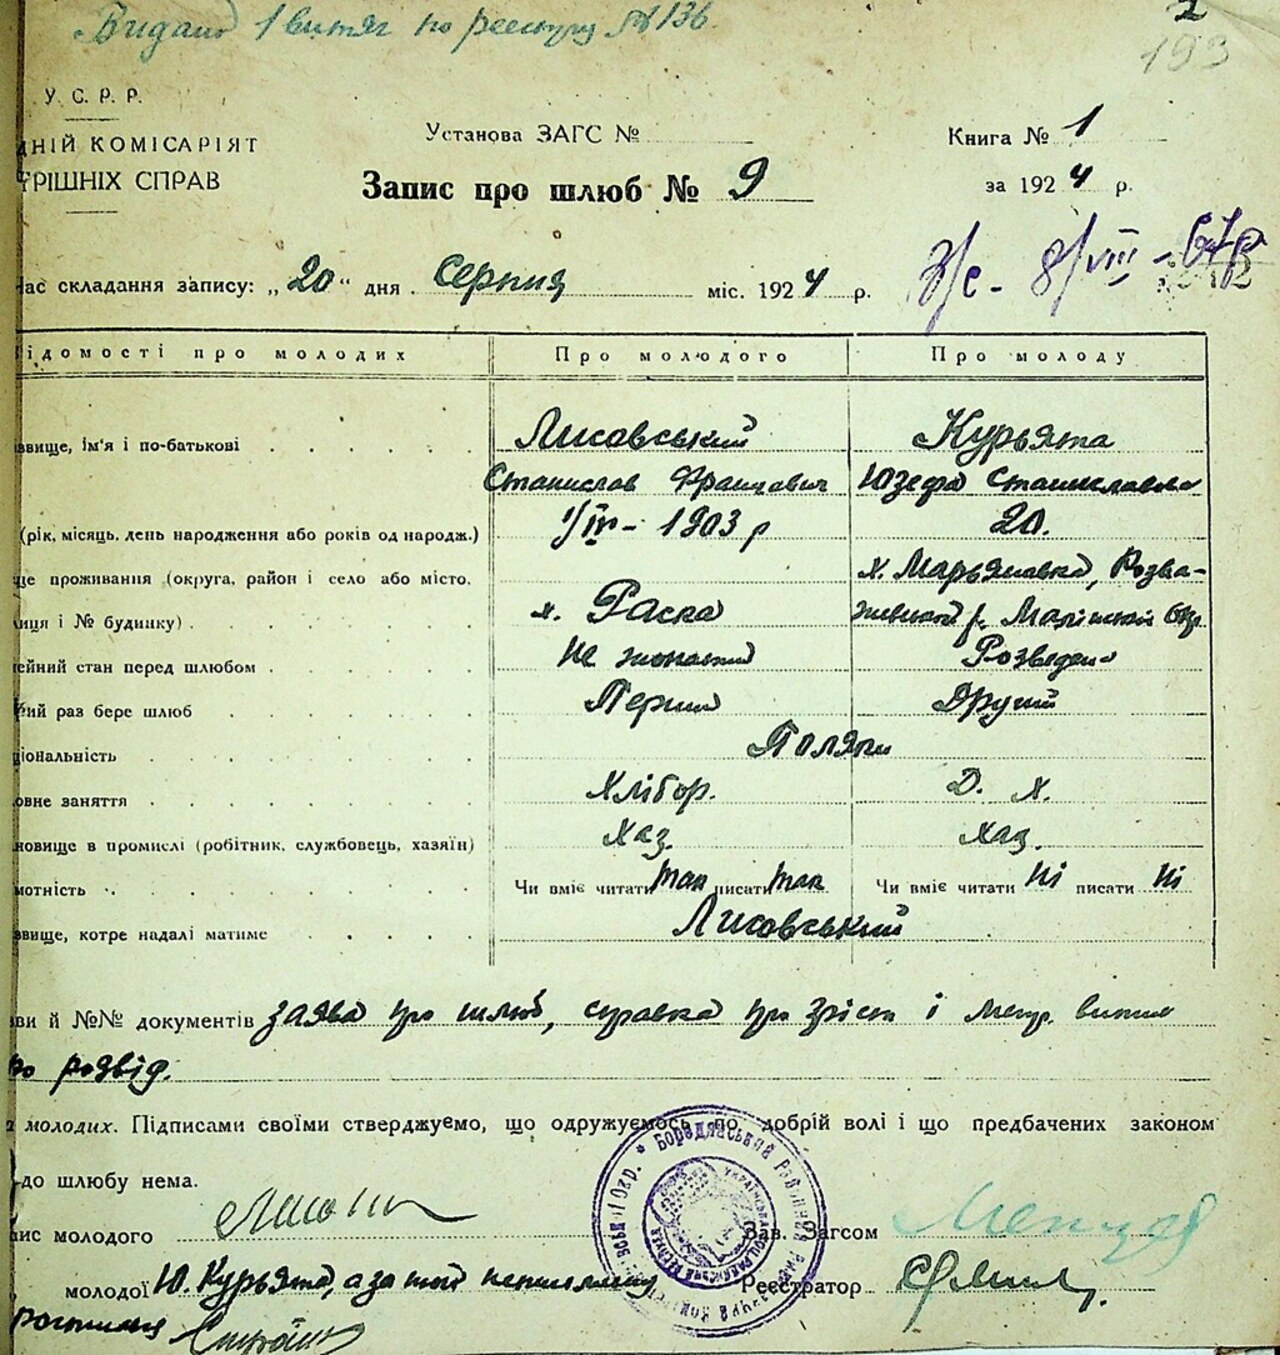 Видано 1 витяг по реестру № 136
2
193
У. С. Р. Р.
ДНІЙ КОМІСАРІЯТ
ТРІШНІХ СПРАВ
Установа ЗАГС №
Запис про шлюб № 9
Книга № 1
за 1924 р.
З/с - 8/VIII - 67р
Час складання запису: „20“ дня Серпня міс. 1924 р.
ідомості про молодих Про молодого Про молоду
звище, ім'я і по-батькові Лисовський Курьята
Станислав Францович Юзефа Станиславова
(рік, місяць, день народження або років од народж.) 1/IV - 1903 р 20.
ще проживання (округа, район і село або місто, х. Марьяновка, Розва-
лиця і № будинку) х. Раска жевської р. Малінської Окр.
ейний стан перед шлюбом Не жонатий Розведена
кий раз бере шлюб Перший Другий
ціональність Поляки
овне заняття Хлібор. Д. Х.
новище в промислі (робітник, службовець, хазяїн) Хаз. Хаз.
мотність Чи вміє читати так писати так Чи вміє читати ні писати ні
звище, котре надалі матиме Лисовський
ви й №№ документів Заява про шлюб, справка про зріст і метр. витяг
ро розвід.
молодих. Підписами своїми стверджуємо, що одружуємось по добрій волі і що предбачених законом
до шлюбу нема.
ис молодого
Зав. Загсом
молодої Ю. Курьята, а за неї неписьменну
Реєстратор
росписався
Бородянський Районний